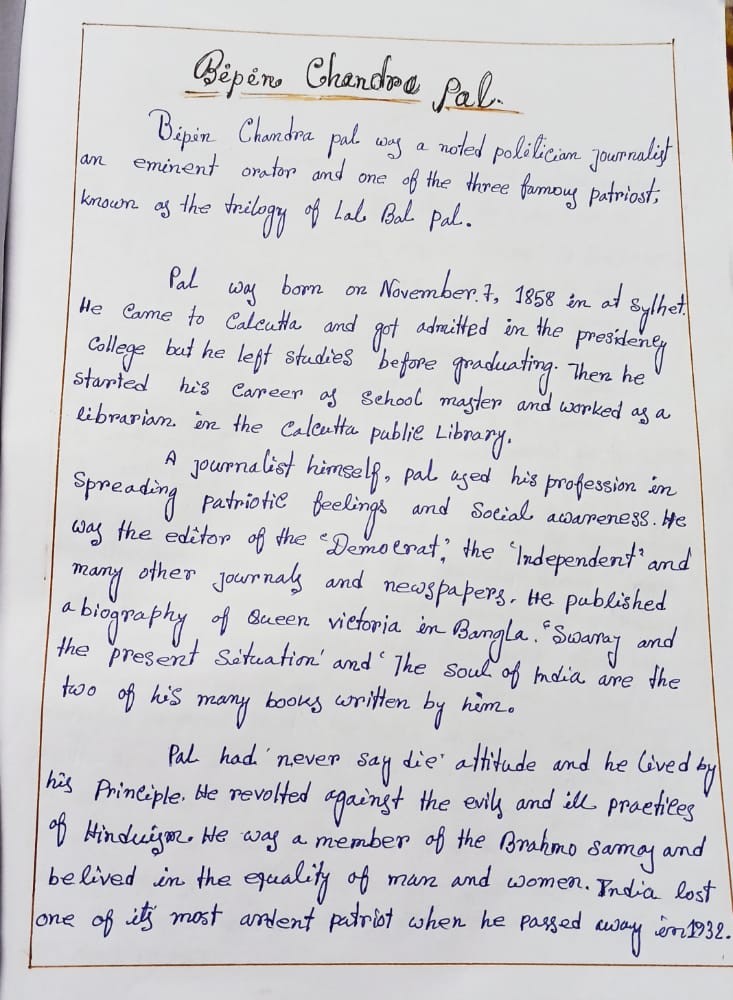 Bipin Chandra Pal.
Bipin Chandra pal was a noted politician journalist
an eminent orator and one of the three famous patriost,
known as the trilogy of Lal Bal Pal.
Pal was born on November.7, 1858 in at Sylhet.
He came to Calcutta and got admitted in the presidency
College but he left studies before graduating. Then he
started his career as School master and worked as a
librarian. in the Calcutta public Library.
A journalist himself, pal used his profession in
Spreading patriotic feelings and Social awareness. He
was the editor of the 'Democrat', the 'Independent' and
many other journals and newspapers. He published
a biography of Queen victoria in Bangla. 'Swaraj and
the present Situation' and 'The soul of India are the
two of his many books written by him.
Pal had 'never say die' attitude and he lived by
his Principle. He revolted against the evils and ill practices
of Hinduism. He was a member of the Brahmo Samaj and
belived in the equality of man and women. India lost
one of its most ardent patriot when he passed away in 1932.